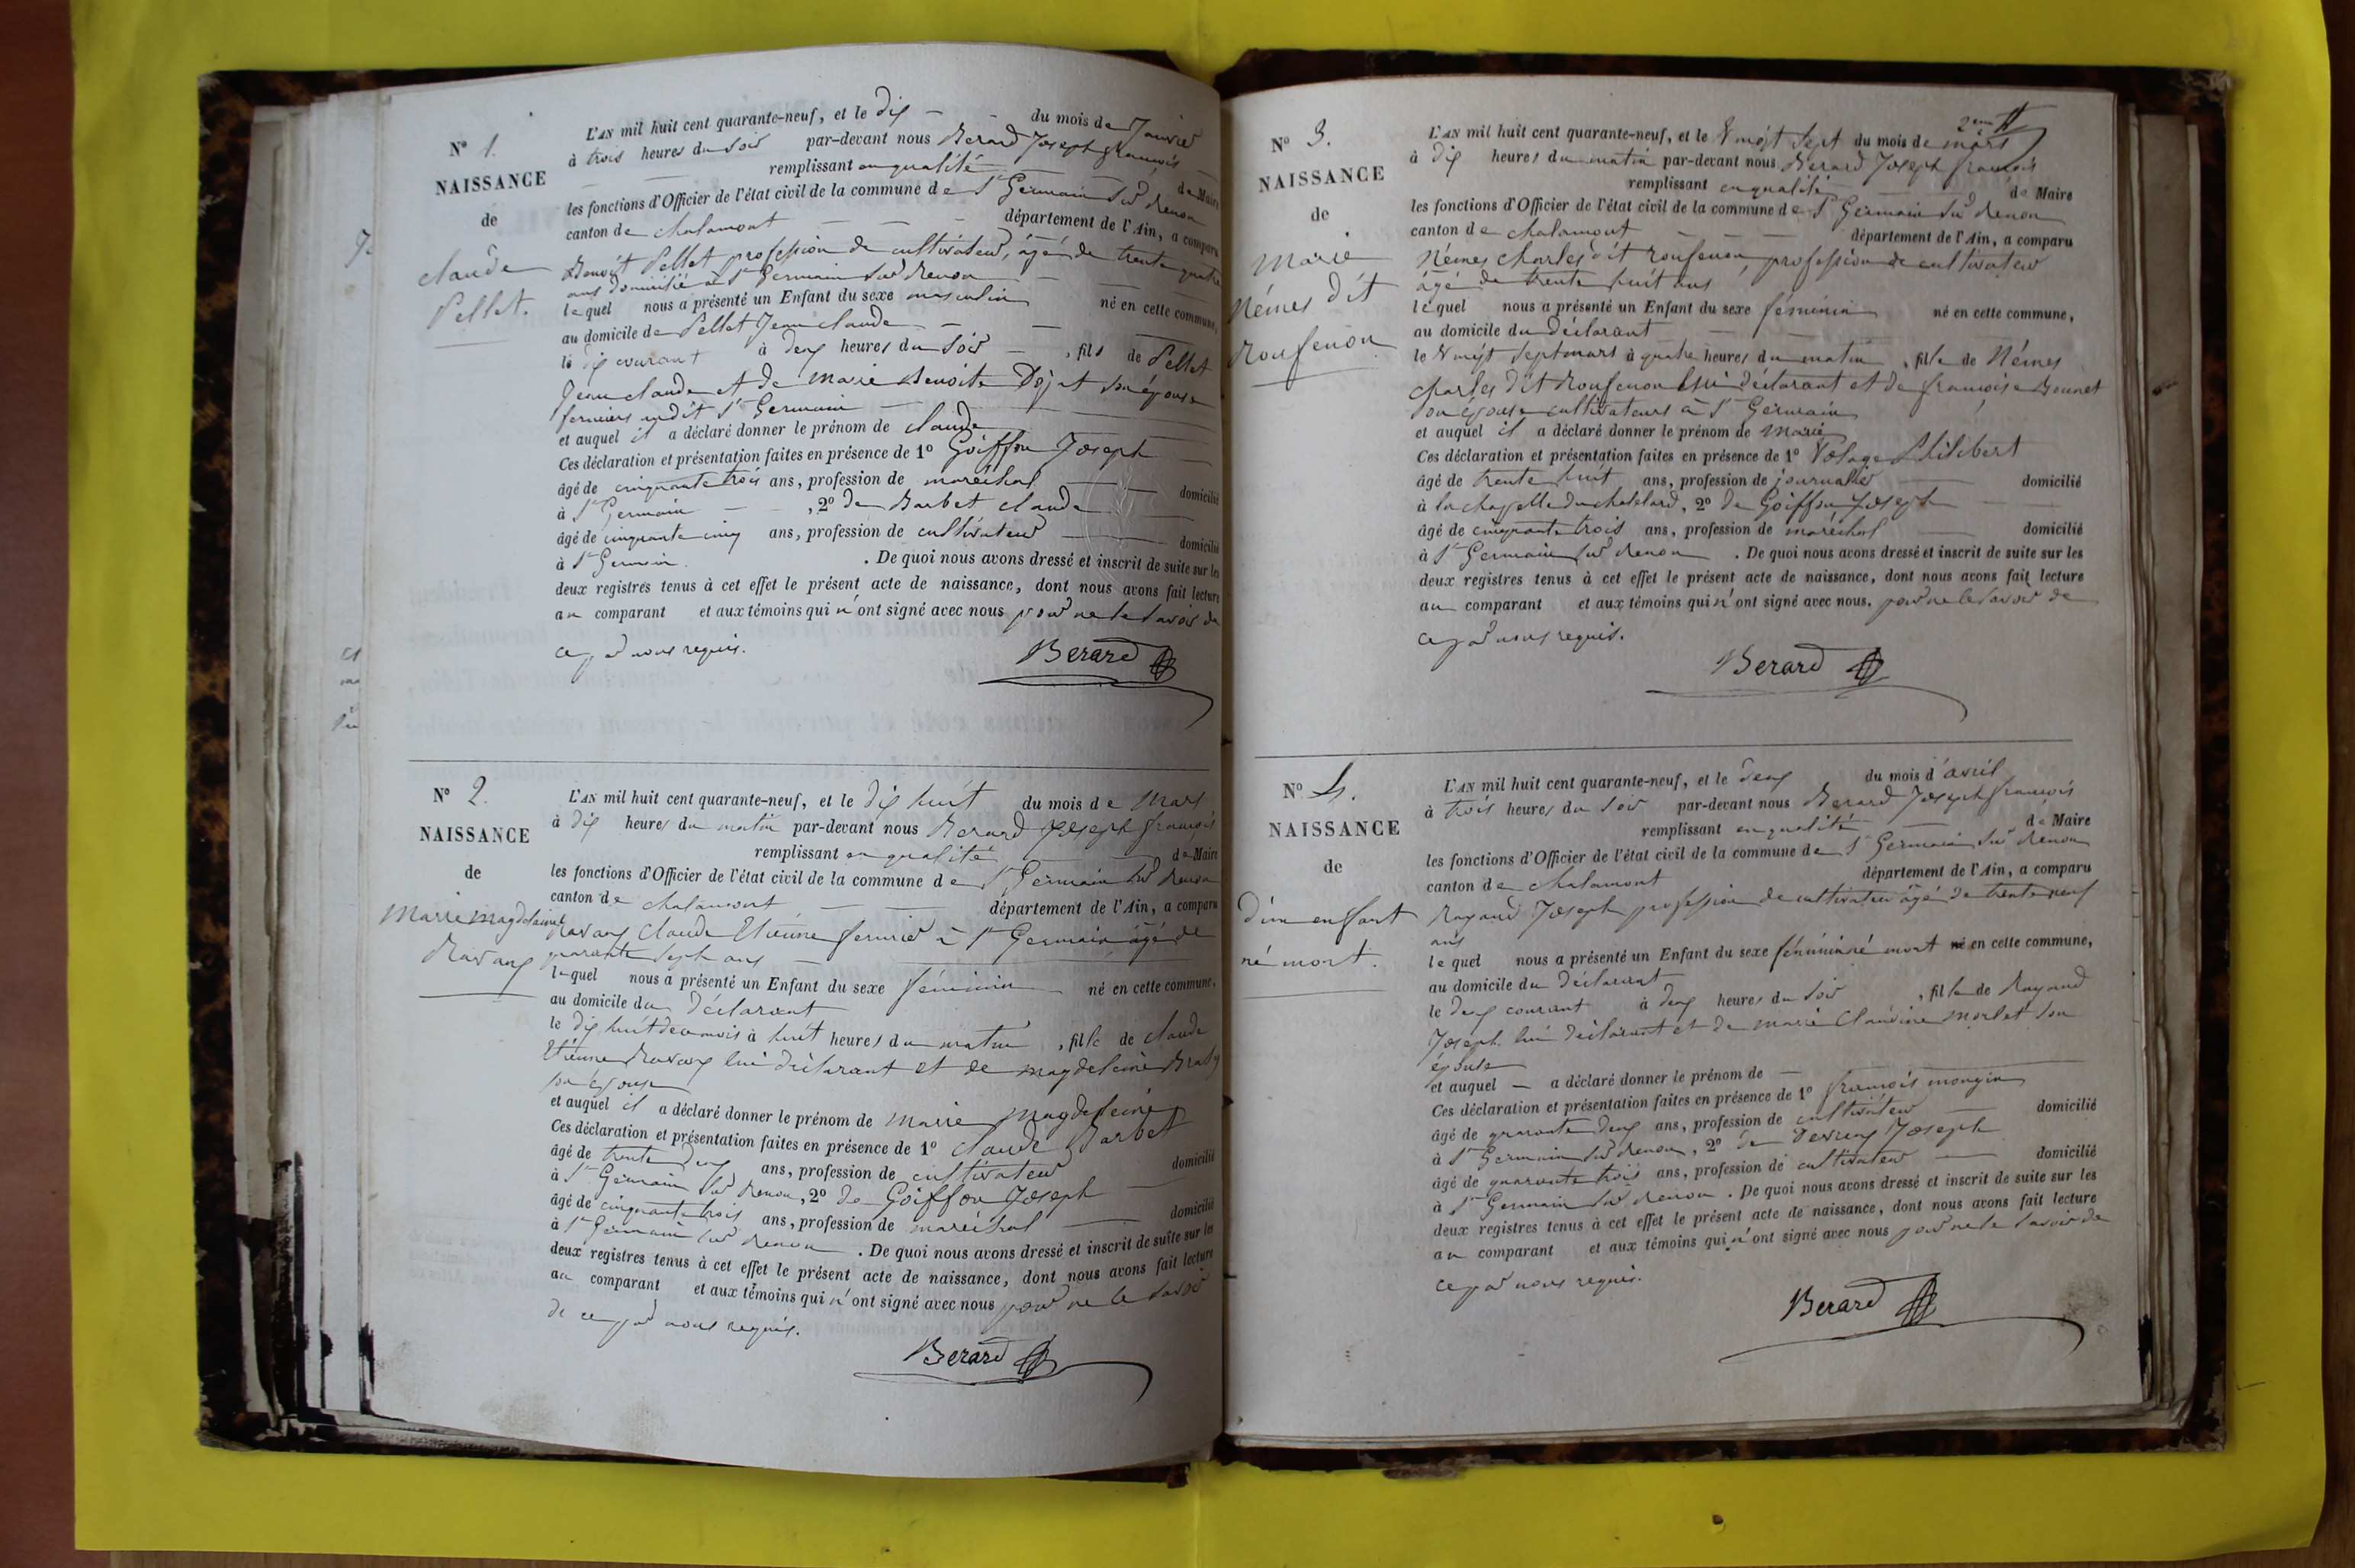 N° 1.
NAISSANCE
de
claude
Pellet.
L'AN mil huit cent quarante-neuf, et le dix du mois de Janvier
à trois heures du soir par-devant nous Berard Joseph françois
remplissant en qualité de Maire
les fonctions d'Officier de l'état civil de la commune de St Germain sur Renon
canton de chalamont département de l'Ain, a comparu
Benoît Pellet profession de cultivateur, âgé de trente quatre
ans domicilié à St Germain sur Renon
lequel nous a présenté un Enfant du sexe masculin né en cette commune,
au domicile de Pellet Jean claude
le dix courant à deux heures du soir , fils de Pellet
Jean claude et de Marie Benoite Dojat son épouse
fermiers audit St Germain
et auquel il a déclaré donner le prénom de claude
Ces déclaration et présentation faites en présence de 1° Goiffon Joseph
âgé de cinquante trois ans, profession de maréchal domicilié
à St Germain , 2° de Barbet claude
âgé de cinquante cinq ans, profession de cultivateur domicilié
à St Germain. . De quoi nous avons dressé et inscrit de suite sur les
deux registres tenus à cet effet le présent acte de naissance, dont nous avons fait lecture
au comparant et aux témoins qui n'ont signé avec nous pour ne le savoir de
ce par nous requis.
Berard
N° 2.
NAISSANCE
de
Marie magdelaine
Ravaux
L'AN mil huit cent quarante-neuf, et le dix huit du mois de Mars
à dix heures du matin par-devant nous Berard Joseph françois
remplissant en qualité de Maire
les fonctions d'Officier de l'état civil de la commune de St Germain sur Renon
canton de chalamont département de l'Ain, a comparu
Ravaux Claude Etienne fermier à St Germain âgé de
quarante sept ans
lequel nous a présenté un Enfant du sexe féminin né en cette commune,
au domicile du déclarant
le dix huit de ce mois à huit heures du matin , fille de claude
Etienne Ravaux lui déclarant et de magdeleine
son épouse
et auquel il a déclaré donner le prénom de marie Magdeleine
Ces déclaration et présentation faites en présence de 1° claude Barbet
âgé de trente deux ans, profession de cultivateur domicilié
à St Germain sur Renon, 2° de Goiffon Joseph
âgé de cinquante trois ans, profession de maréchal domicilié
à St Germain sur Renon . De quoi nous avons dressé et inscrit de suite sur les
deux registres tenus à cet effet le présent acte de naissance, dont nous avons fait lecture
au comparant et aux témoins qui n'ont signé avec nous pour ne le savoir
de ce par nous requis.
Berard
2eme
N° 3.
NAISSANCE
de
Marie
Némes dit
Roufenon
L'AN mil huit cent quarante-neuf, et le Vingt sept du mois de mars
à dix heures du matin par-devant nous Berard Joseph françois
remplissant en qualité de Maire
les fonctions d'Officier de l'état civil de la commune de St Germain sur Renon
canton de chalamont département de l'Ain, a comparu
Némes charles dit Roufenon, profession de cultivateur
âgé de trente huit ans
lequel nous a présenté un Enfant du sexe féminin né en cette commune,
au domicile du déclarant
le Vingt sept mars à quatre heures du matin , fille de Némes
charles dit Roufenon lui déclarant et de françoise Bonnet
son épouse cultivateurs à St Germain
et auquel il a déclaré donner le prénom de Marie
Ces déclaration et présentation faites en présence de 1° Volage Philibert
âgé de trente huit ans, profession de journalier domicilié
à la chapelle du chatelard, 2° de Goiffon Joseph
âgé de cinquante trois ans, profession de maréchal domicilié
à St Germain sur Renon . De quoi nous avons dressé et inscrit de suite sur les
deux registres tenus à cet effet le présent acte de naissance, dont nous avons fait lecture
au comparant et aux témoins qui n'ont signé avec nous. pour ne le savoir de
ce par nous requis.
Berard
N° 4.
NAISSANCE
de
d'un enfant
né mort.
L'AN mil huit cent quarante-neuf, et le deux du mois d'avril
à trois heures du soir par-devant nous Berard Joseph françois
remplissant en qualité de Maire
les fonctions d'Officier de l'état civil de la commune de St Germain sur Renon
canton de chalamont département de l'Ain, a comparu
Rayaud Joseph profession de cultivateur âgé de trente neuf
ans
lequel nous a présenté un Enfant du sexe féminin né mort né en cette commune,
au domicile du déclarant
le deux courant à deux heures du soir , fille de Rayaud
Joseph lui déclarant et de marie Claudine Morlet son
épouse
et auquel — a déclaré donner le prénom de —
Ces déclaration et présentation faites en présence de 1° françois mongin
âgé de quarante deux ans, profession de cultivateur domicilié
à St Germain sur Renon, 2° de Joseph
âgé de quarante trois ans, profession de cultivateur domicilié
à St Germain sur Renon . De quoi nous avons dressé et inscrit de suite sur les
deux registres tenus à cet effet le présent acte de naissance, dont nous avons fait lecture
au comparant et aux témoins qui n'ont signé avec nous pour ne le savoir de
ce par nous requis.
Berard